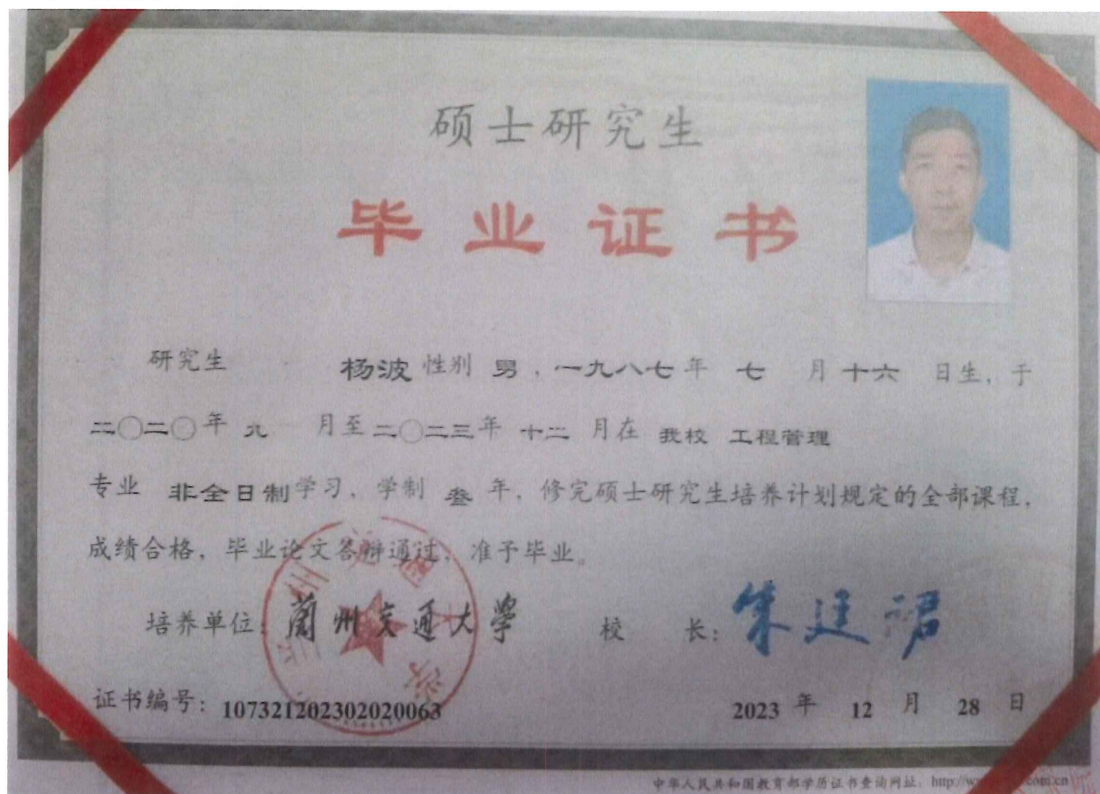 硕士研究生
毕业证书
研究生 杨波 性别 男，一九八七年 七 月 十六 日生，于
二〇二〇年 九 月至 二〇二三年 十二 月在 我校 工程管理
专业 非全日制学习，学制 叁 年，修完硕士研究生培养计划规定的全部课程，
成绩合格，毕业论文答辩通过，准予毕业。
培养单位：蘭州交通大學 校 长：朱廷珺
证书编号：107321202302020063 2023 年 12 月 28 日
中华人民共和国教育部学历证书查询网址：http://w .com.cn